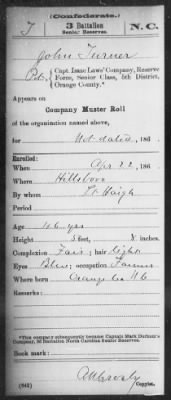 (Confederate.)
T 3 Battalion N. C.
Senior Reserves.
John Turner
Pvt, Capt. Isaac Laws' Company, Reserve
Force, Senior Class, 5th District,
Orange County.*
Appears on
Company Muster Roll
of the organization named above,
for Not dated, 186 .
Enrolled:
When Apr 22, 186 .
Where Hillsboro
By whom Lt Haigh
Period
Age 46 yrs
Height 5 feet, 8 inches.
Complexion Fair; hair Light
Eyes Blue; occupation Farmer
Where born Orange Co NC
Remarks:
*This company subsequently became Captain Mark Durham's
Company, 3d Battalion North Carolina Senior Reserves.
Book mark:
(642) Copyist.